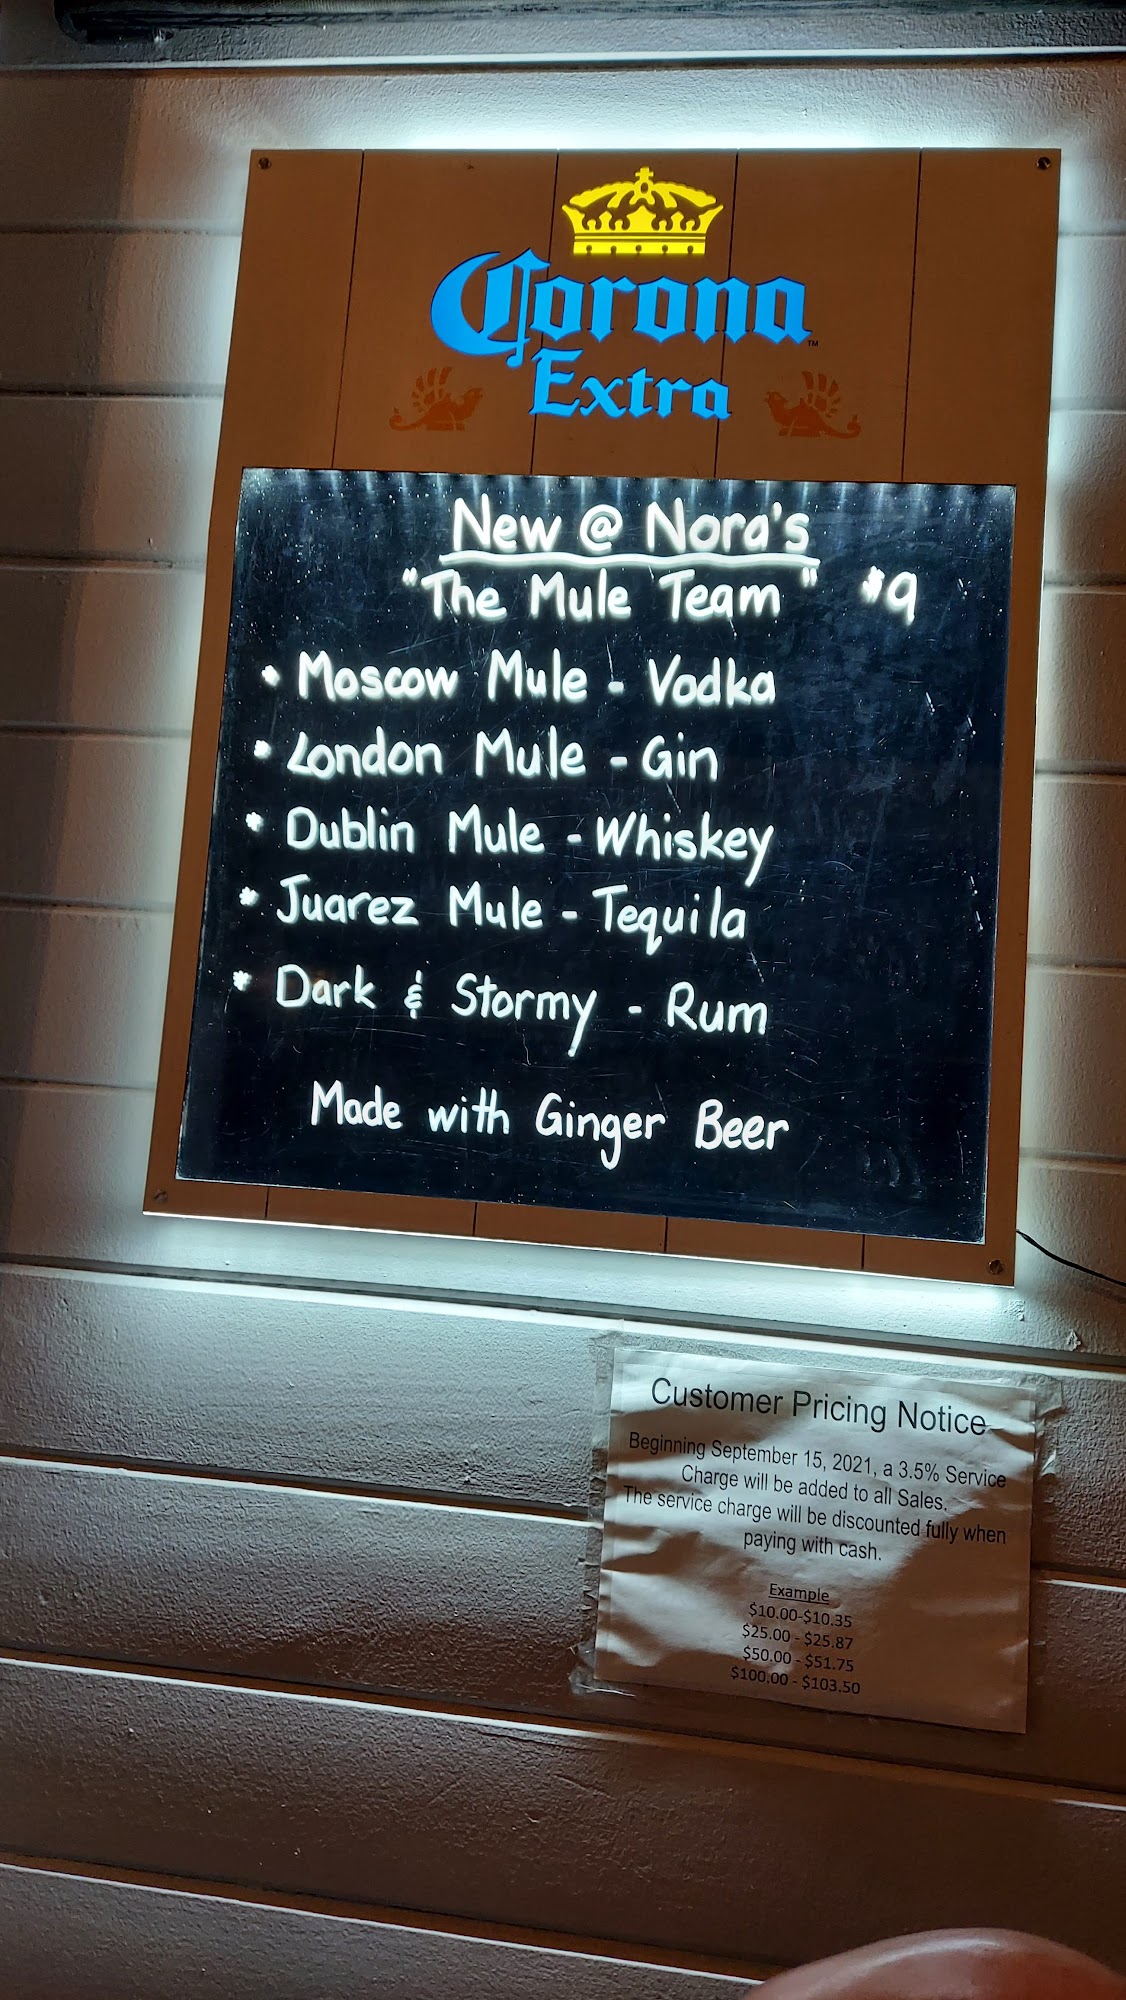 Corona
Extra
™
New @ Nora's
"The Mule Team" $9
* Moscow Mule - Vodka
* London Mule - Gin
* Dublin Mule - Whiskey
* Juarez Mule - Tequila
* Dark & Stormy - Rum
Made with Ginger Beer
Customer Pricing Notice
Beginning September 15, 2021, a 3.5% Service
Charge will be added to all Sales.
The service charge will be discounted fully when
paying with cash.
Example
$10.00-$10.35
$25.00 - $25.87
$50.00 - $51.75
$100.00 - $103.50